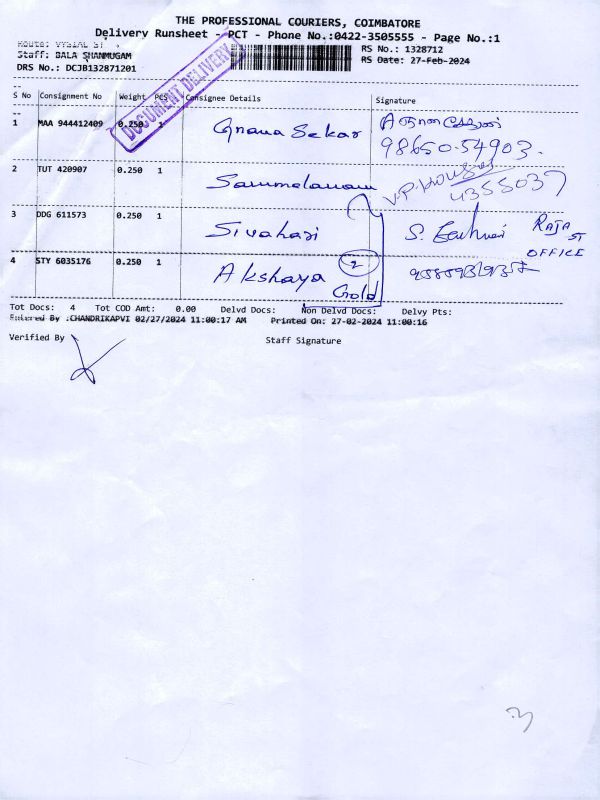 THE PROFESSIONAL COURIERS, COIMBATORE
Delivery Runsheet - PCT - Phone No.:0422-3505555 - Page No.:1
Route: VYSIAL ST
RS No.: 1328712
Staff: BALA SHANMUGAM
RS Date: 27-Feb-2024
DRS No.: DCJB132871201
DOCUMENT DELIVERY
S No Consignment No Weight PCS Consignee Details Signature
1 MAA 944412409 0.250 1 Gnana Sekar
98650-54903.
2 TUT 420907 0.250 1 Sammdanam V.P. House
4355037
3 DDG 611573 0.250 1 Sivahari S. RAJA ST
OFFICE
4 STY 6035176 0.250 1 Akshaya 2
Gold
Tot Docs: 4 Tot COD Amt: 0.00 Delvd Docs: Non Delvd Docs: Delvy Pts:
Entered By :CHANDRIKAPVI 02/27/2024 11:00:17 AM Printed On: 27-02-2024 11:00:16
Verified By
Staff Signature